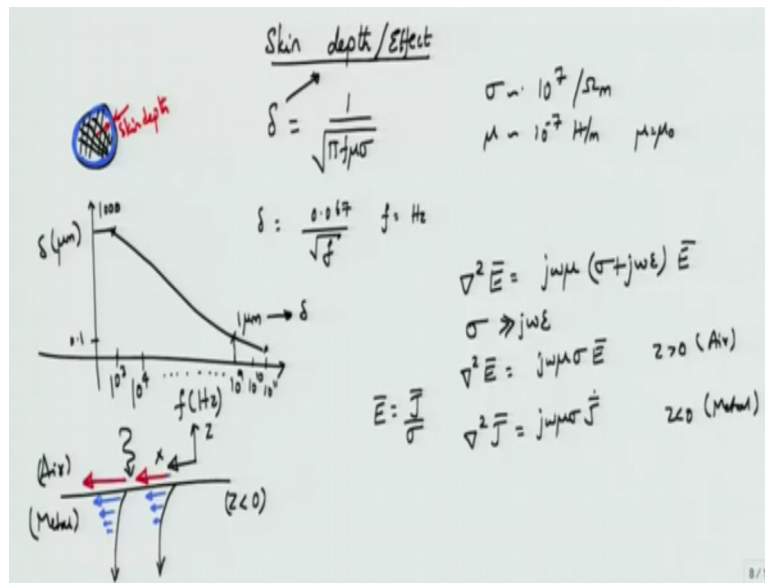 Skin depth/Effect
skin depth
δ = 1 / √(πfμσ)
σ ~ 10^7 /Ωm
μ ~ 10^-7 H/m μ=μ0
δ = 0.067 / √f f = Hz
δ(μm)
1000
0.1
1μm → δ
10^3 10^4 ........ 10^9 10^10 10^11
f(Hz)
∇²Ē = jωμ (σ+jωε) Ē
σ ≫ jωε
∇²Ē = jωμσ Ē z>0 (Air)
Ē = J̄/σ ∇²J̄ = jωμσ J̄ z<0 (Metal)
z
x
(Air)
(Metal) (z<0)